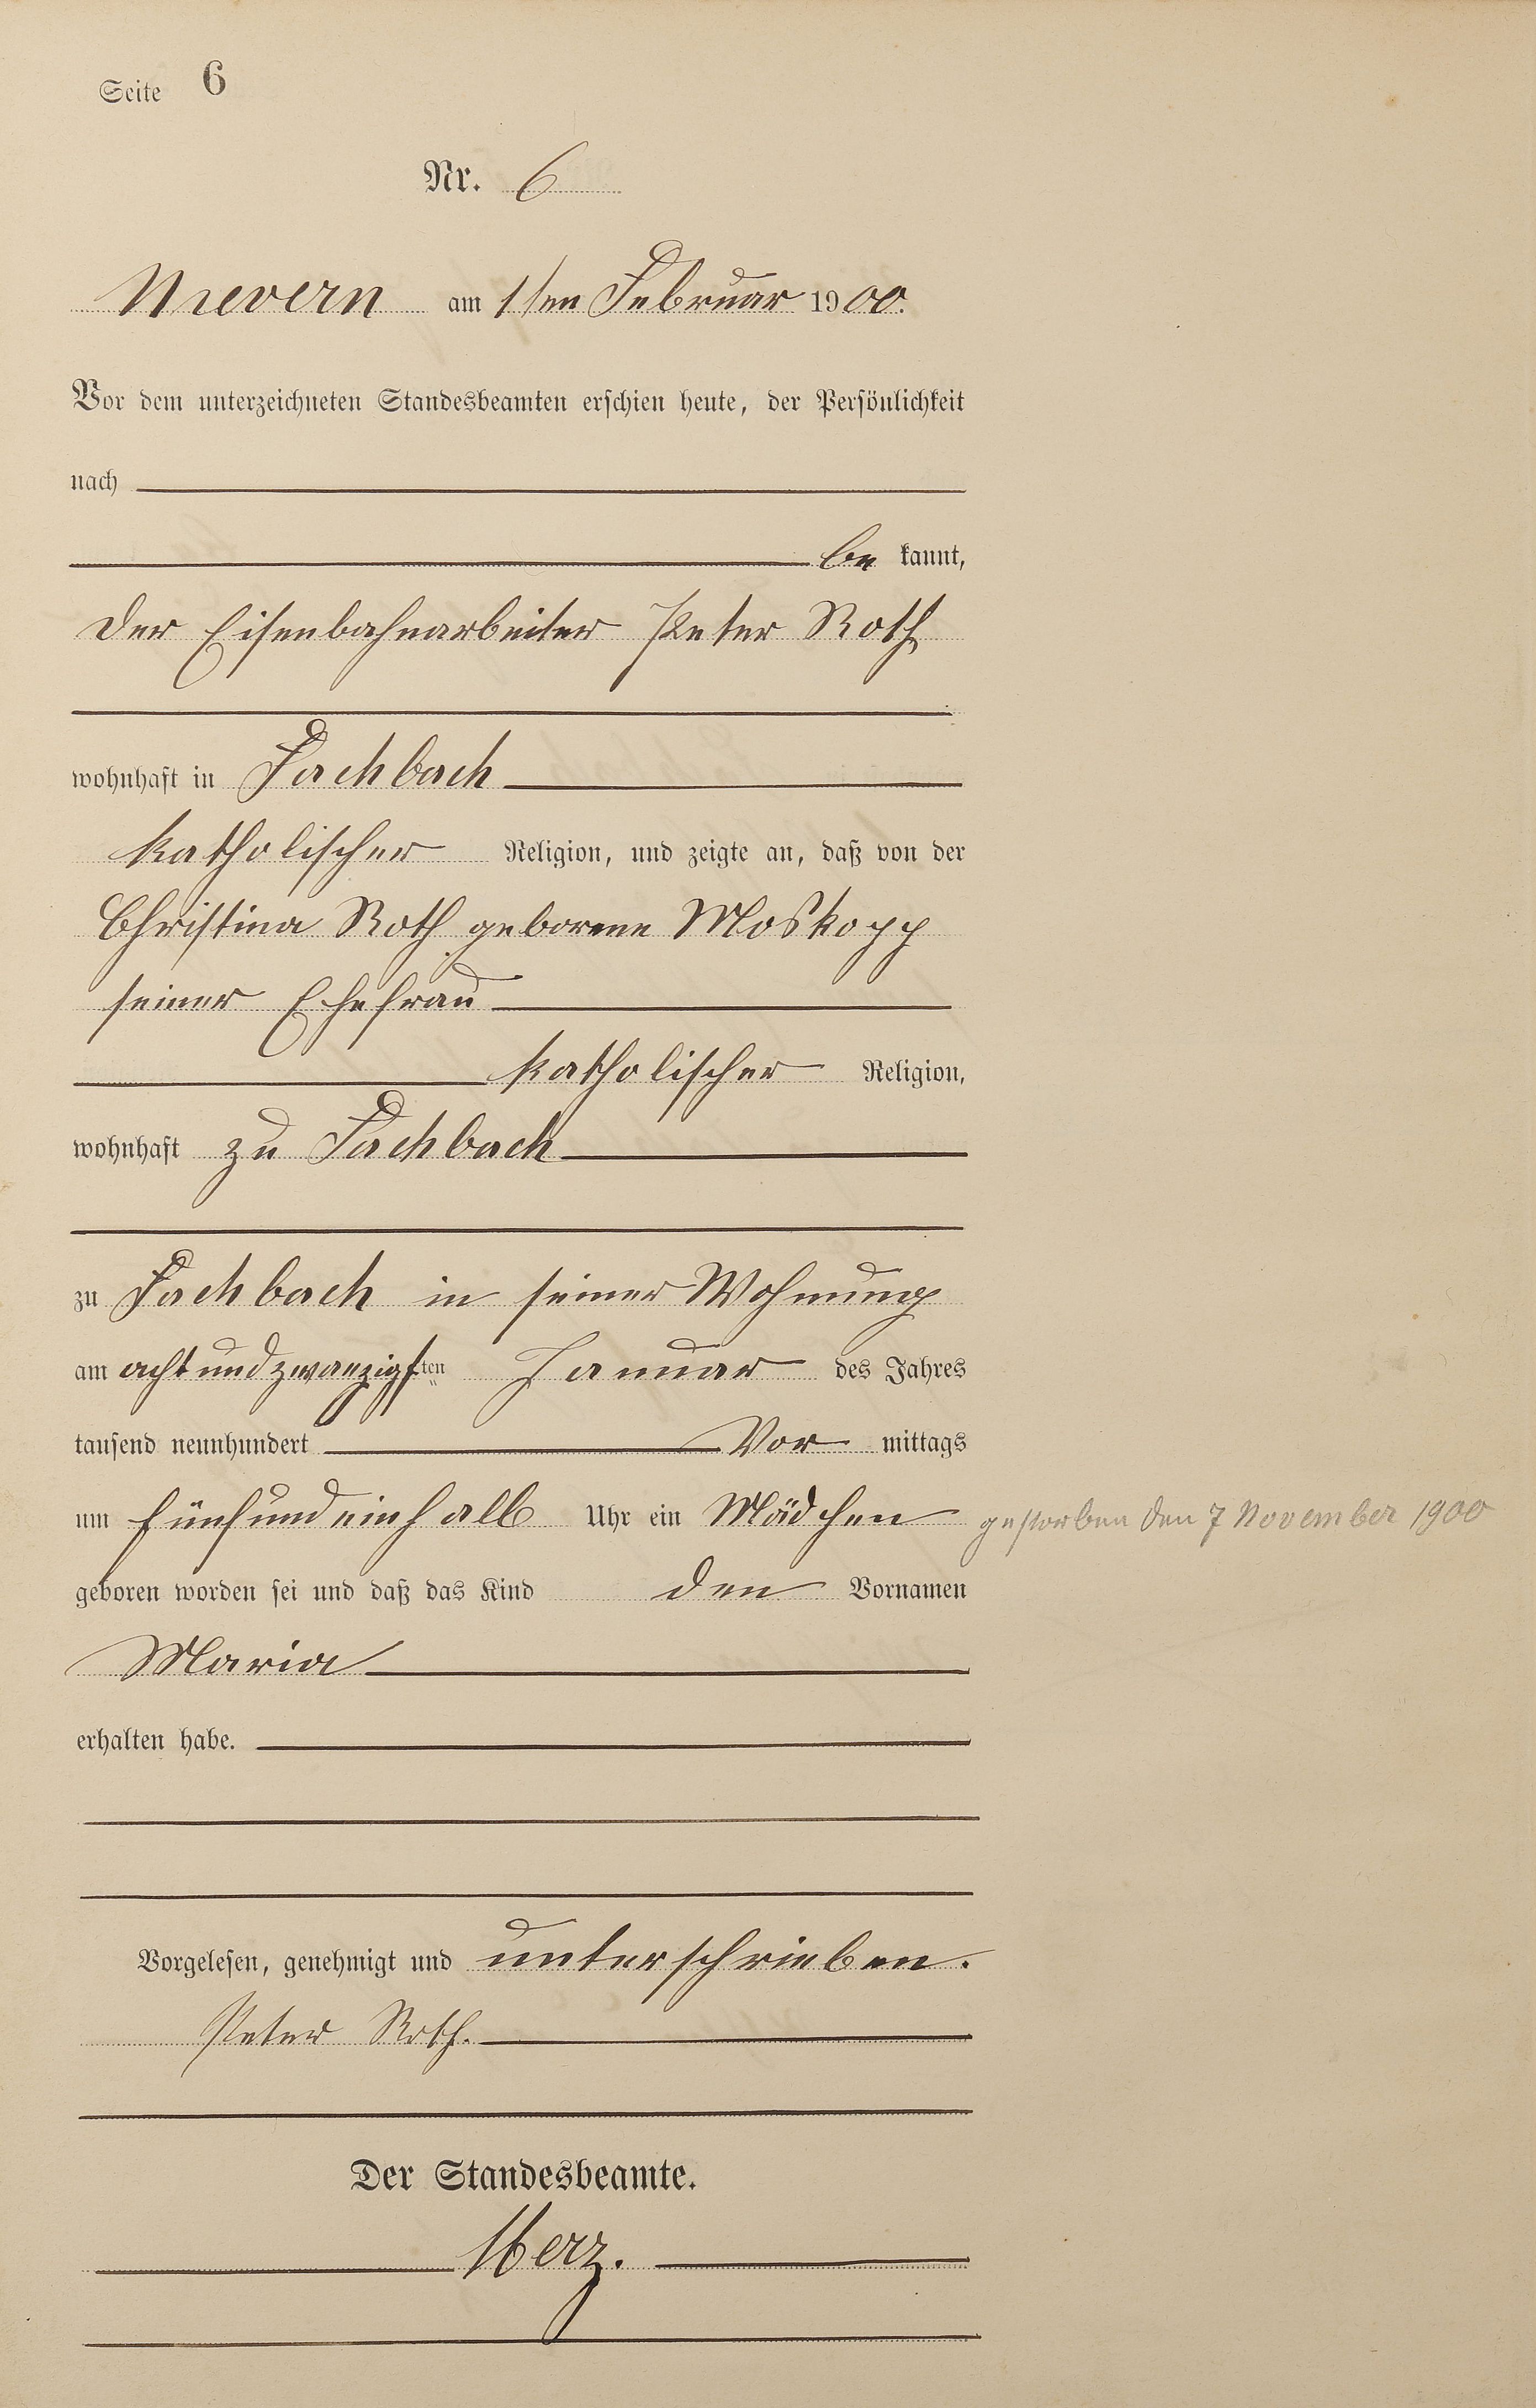 Seite 6
Nr. 6
Nievern am 1ten Februar 1900.
Vor dem unterzeichneten Standesbeamten erschien heute, der Persönlichkeit
nach
be kannt,
der Eisenbahnarbeiter Peter Roth
wohnhaft in Fachbach
katholischer Religion, und zeigte an, daß von der
Christina Roth geborene Moskopp
seiner Ehefrau
katholischer Religion,
wohnhaft zu Fachbach
zu Fachbach in seiner Wohnung
am achtundzwanzigsten Januar des Jahres
tausend neunhundert Vor mittags
um fünfundeinhalb Uhr ein Mädchen gestorben den 7 November 1900
geboren worden sei und daß das Kind den Vornamen
Maria
erhalten habe.
Vorgelesen, genehmigt und unterschrieben.
Peter Roth.
Der Standesbeamte.
Herz.